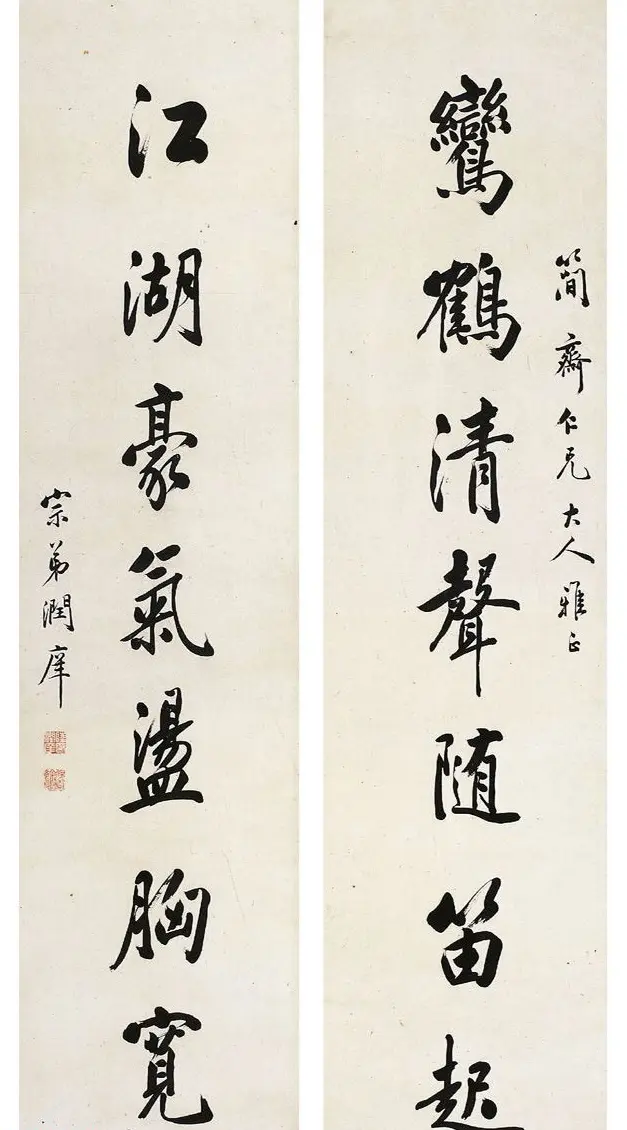 簡齋仁兄大人雅正
鸞鶴清聲随笛起
江湖豪氣盪胸寬
宗弟潤庠